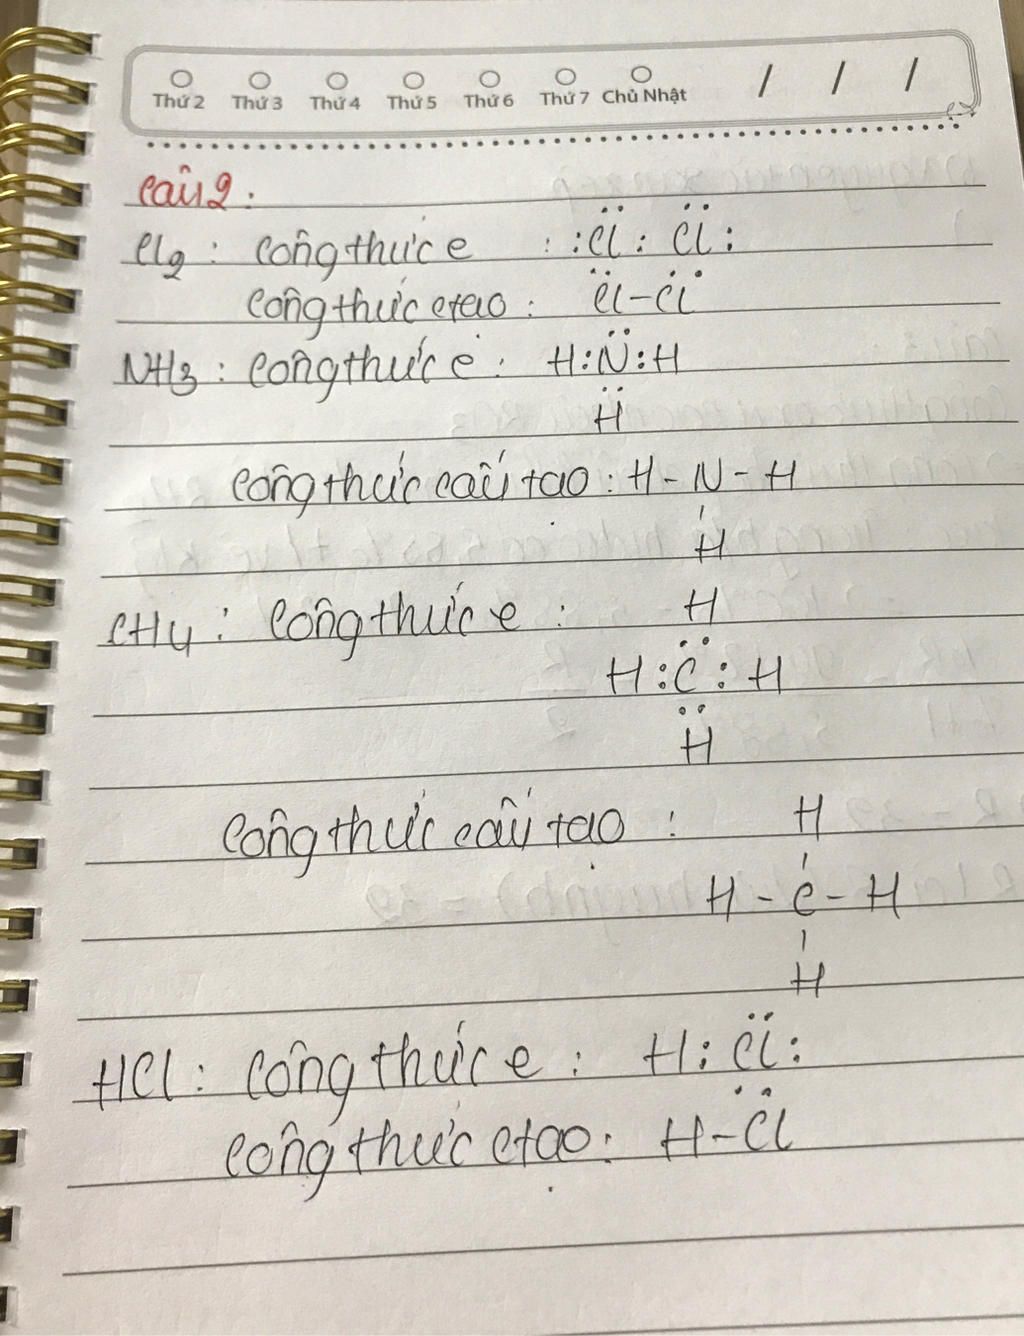 Thứ 2 Thứ 3 Thứ 4 Thứ 5 Thứ 6 Thứ 7 Chủ Nhật / / /
Câu 2:
Cl2 : Công thức e : :C̈l : C̈l :
Công thức ctạo : Cl-Cl
NH3 : Công thức e : H:N̈:H
¨
H
Công thức cấu tạo : H - N - H
|
H
CH4 : Công thức e : H
¨
H : C : H
¨
H
Công thức cấu tạo : H
|
H - C - H
|
H
HCl : Công thức e : H : C̈l :
¨
Công thức ctạo : H-Cl